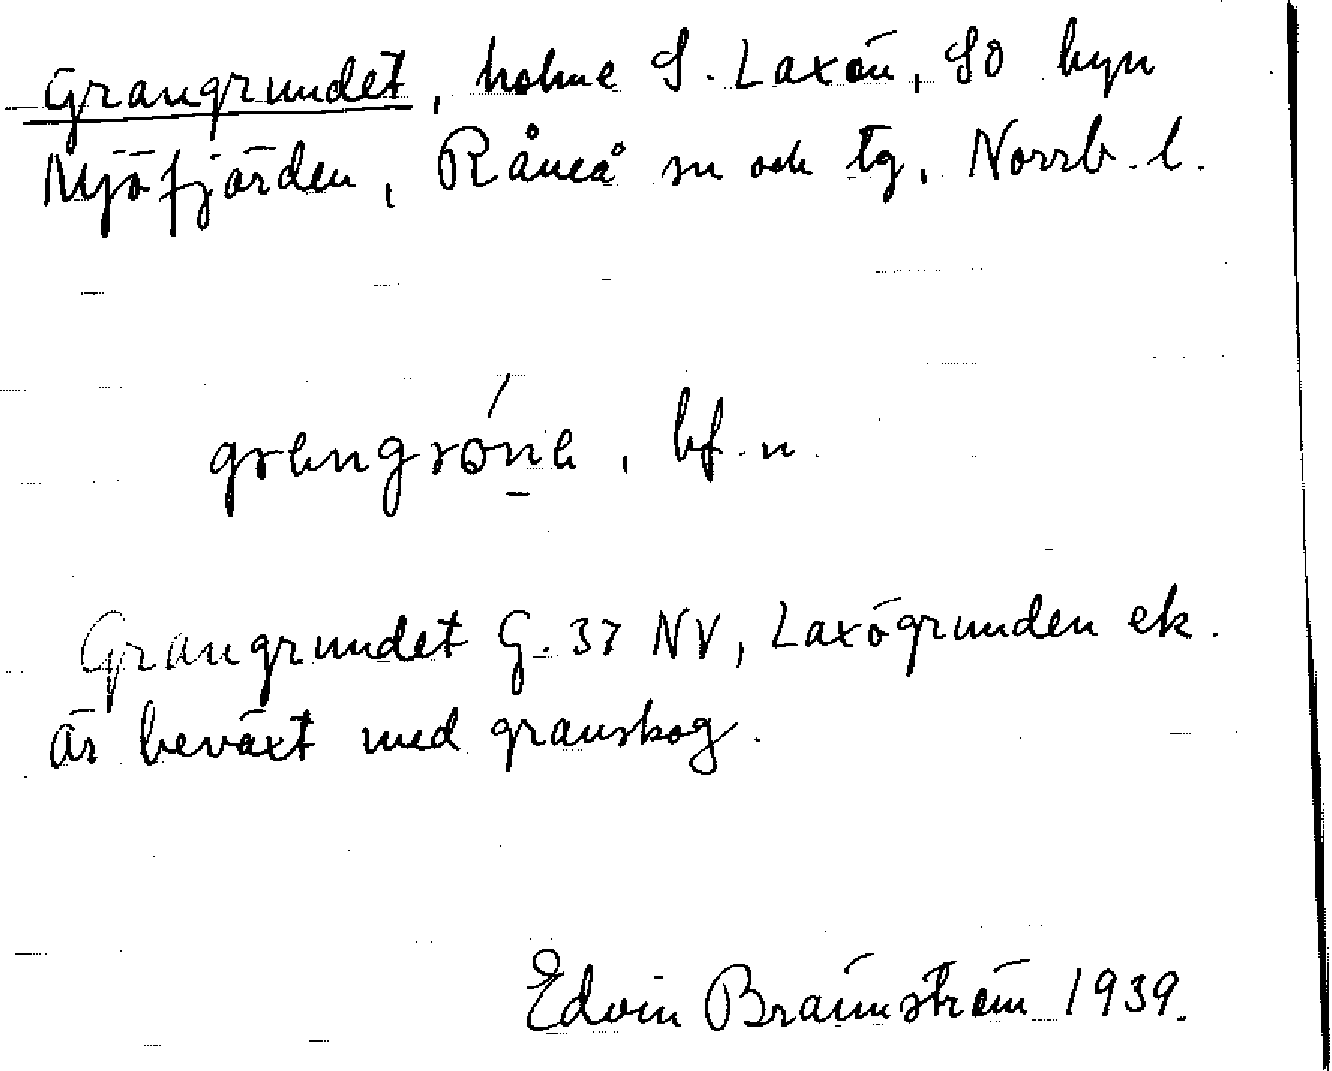 Grangrundet, holme S. Laxön, SO byn
Mjöfjärden, Råneå sn och tg, Norrb. l.
bf. n.
Grangrundet G. 37 NV, Laxögrunden ek.
är beväxt med granskog.
Edvin Brännström 1939.